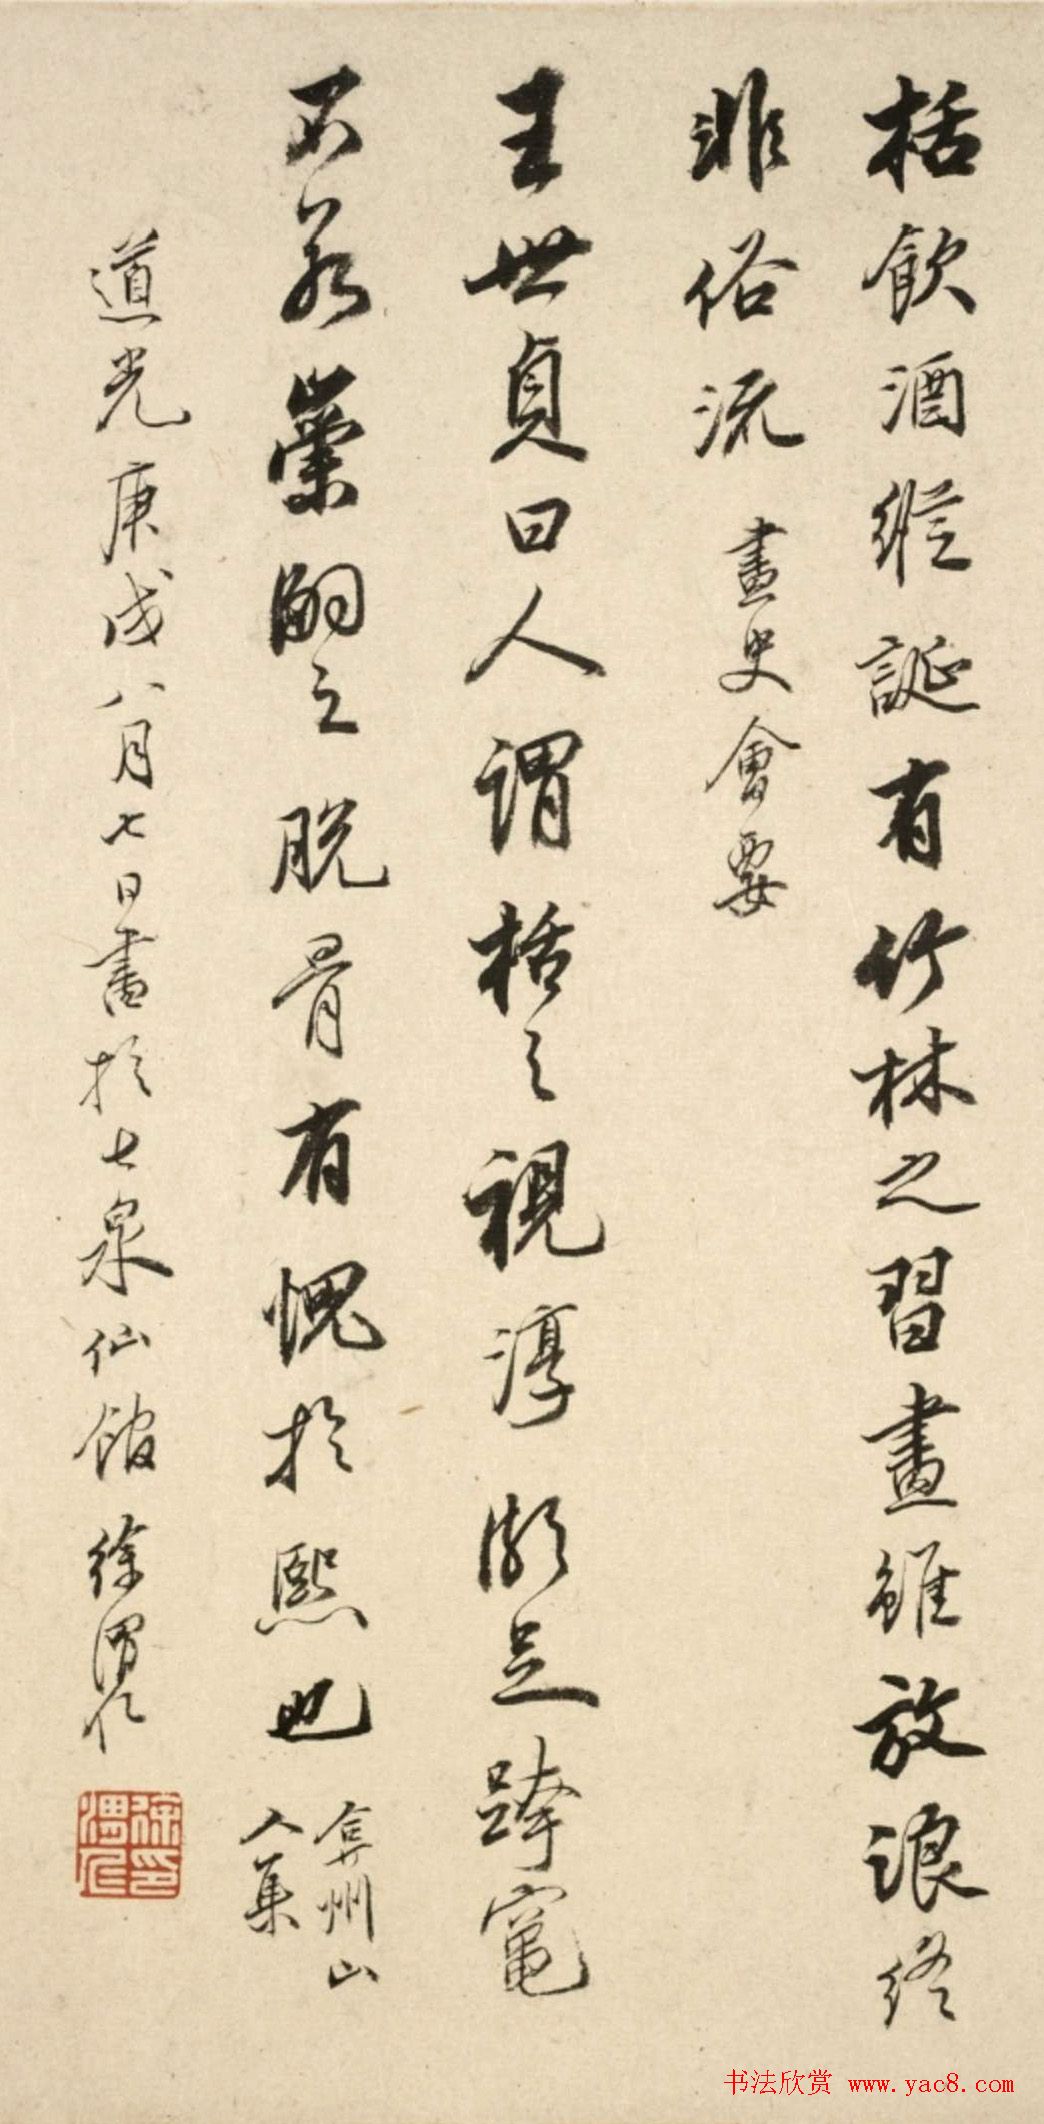 栝飲酒縱誕有竹林之習畫雖放浪終
非俗流 畫史會要
王世貞曰人謂栝之視淳頗足跨竈
不若崇嗣之脫骨有愧於熙也 弇州山
人集
道光庚戌八月七日書於七泉仙館徐渭仁
徐渭仁印
书法欣赏 www.yac8.com